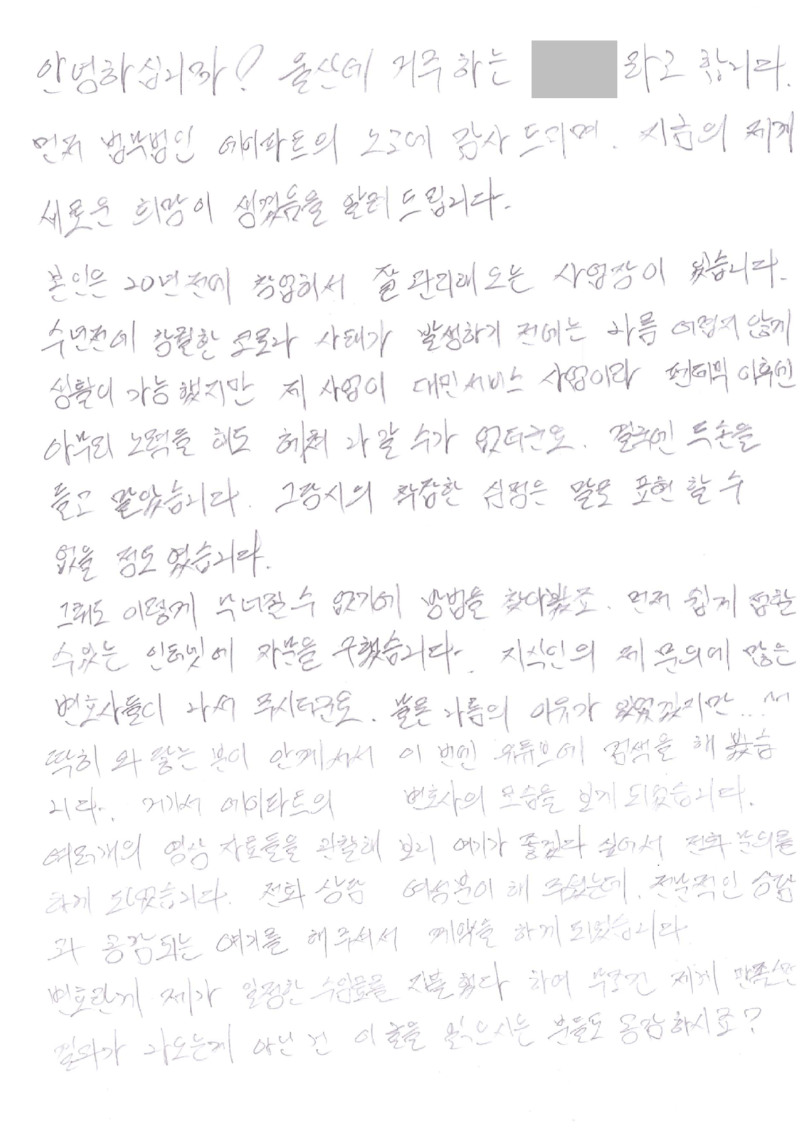 안녕하십니까? 울산에 거주하는 라고 합니다.
먼저 법무법인 에이파트의 노고에 감사 드리며. 지금의 제게
새로운 희망이 생겼음을 알려 드립니다.
본인은 20년전에 창업해서 잘 관리해 오는 사업장이 있습니다.
수년전에 창궐한 코로나 사태가 발생하기 전에는 나름 어렵지 않게
생활이 가능했지만 제 사업이 대민서비스 사업이라 펜데믹 이후엔
아무리 노력을 해도 헤쳐 나갈 수가 없더군요. 결국엔 두손을
들고 말았습니다. 그당시의 착잡한 심정은 말로 표현 할 수
없을 정도 였습니다.
그래도 이렇게 무너질 수 없기에 방법을 찾아봤죠. 먼저 쉽게 접할
수있는 인터넷에 자문을 구했습니다. 지식인의 제 문의에 많은
변호사들이 나서 주시더군요. 물론 나름의 이유가 있었겠지만...
딱히 와 닿는 분이 안계셔서 이 번엔 유튜브에 검색을 해 봤습
니다. 거기서 에이파트의 변호사의 모습을 보게 되었습니다.
여러개의 영상 자료들을 관찰해 보니 여기가 좋겠다 싶어서 전화 문의를
하게 되었습니다. 전화 상담 여성분이 해 주셨는데, 전문적인 상담
과 공감되는 얘기를 해주셔서 계약을 하게 되었습니다.
변호인께 제가 일정한 수임료를 지불 했다 하여 무조건 제게 만족스런
결과가 나오는게 아닌 건 이 글을 읽으시는 분들도 공감하시죠?